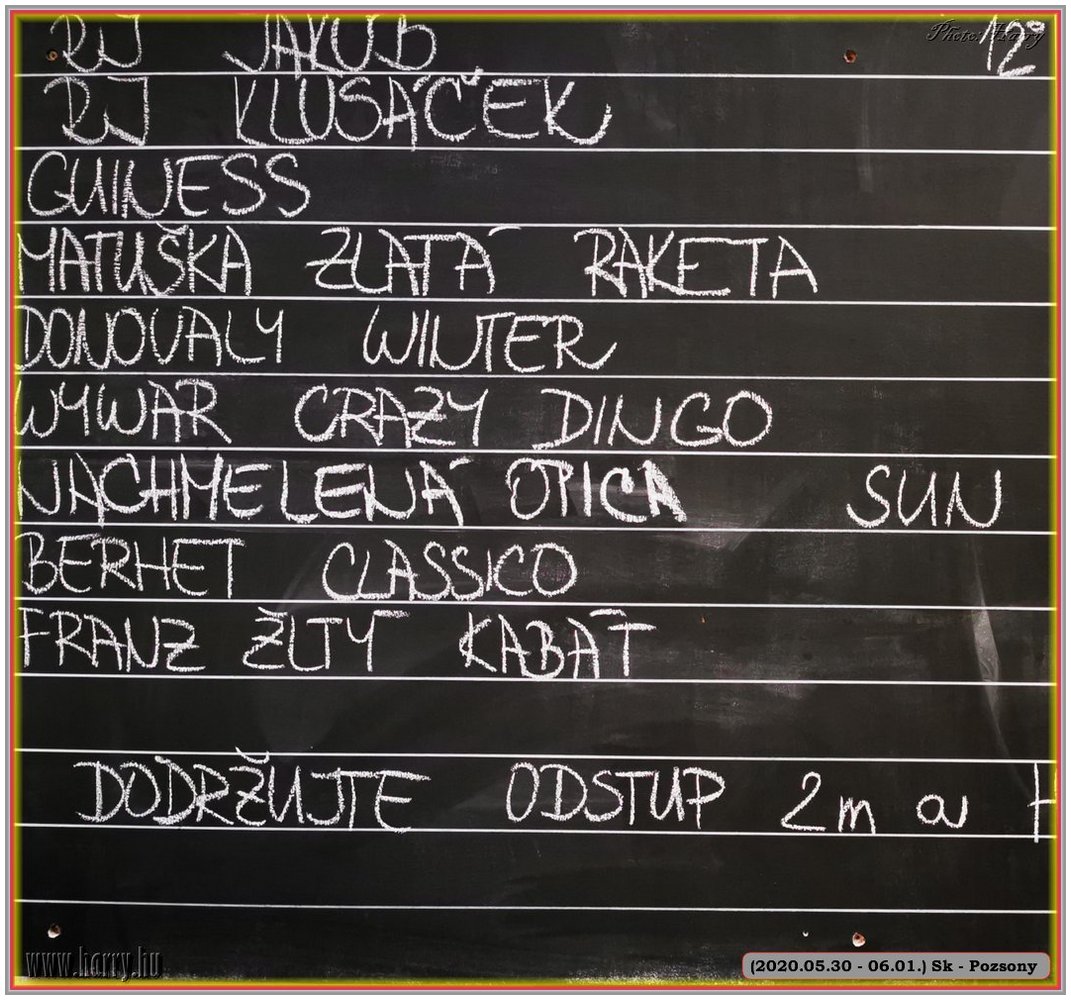 Photo: Harry
RJ JAKUB 12°
RJ KLUSÁČEK
GUINESS
MATUŠKA ZLATÁ RAKETA
DONOVALY WINTER
WYWAR CRAZY DINGO
NACHMELENÁ OPICA SUN
BERHET CLASSICO
FRANZ ŽLTÝ KABÁT
DODRŽUJTE ODSTUP 2m a
www.harry.hu
(2020.05.30 - 06.01.) Sk - Pozsony